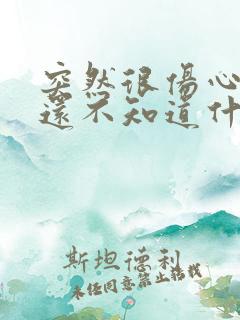 突然很傷心
還不知道什
斯坦德利
未任同意禁止搭載